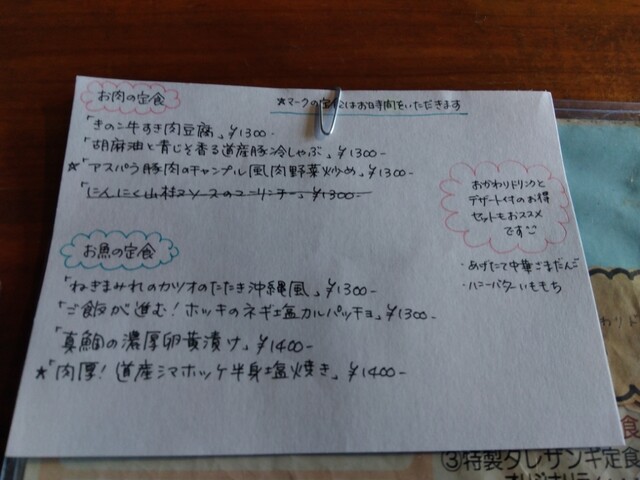 お肉の定食
★マークの定食はお時間をいただきます
「きのこ牛すき肉豆腐」¥1300-
「胡麻油と青じそ香る道産豚冷しゃぶ」¥1300-
★「アスパラ豚肉のチャンプル風肉野菜炒め」¥1300-
「にんにく ¥1300-
おかわりドリンクと
デザート付のお得
セットもおススメ
です
・あげたて中華ごまだんご
・ハニーバターいももち
お魚の定食
「ねぎまみれのカツオのたたき沖縄風」¥1300-
「ご飯が進む!ホッキのネギ塩カルパッチョ」¥1300-
「真鯛の濃厚卵黄漬け」¥1400-
★「肉厚!道産シマホッケ半身塩焼き」¥1400-
食
③特製タレザンギ定食